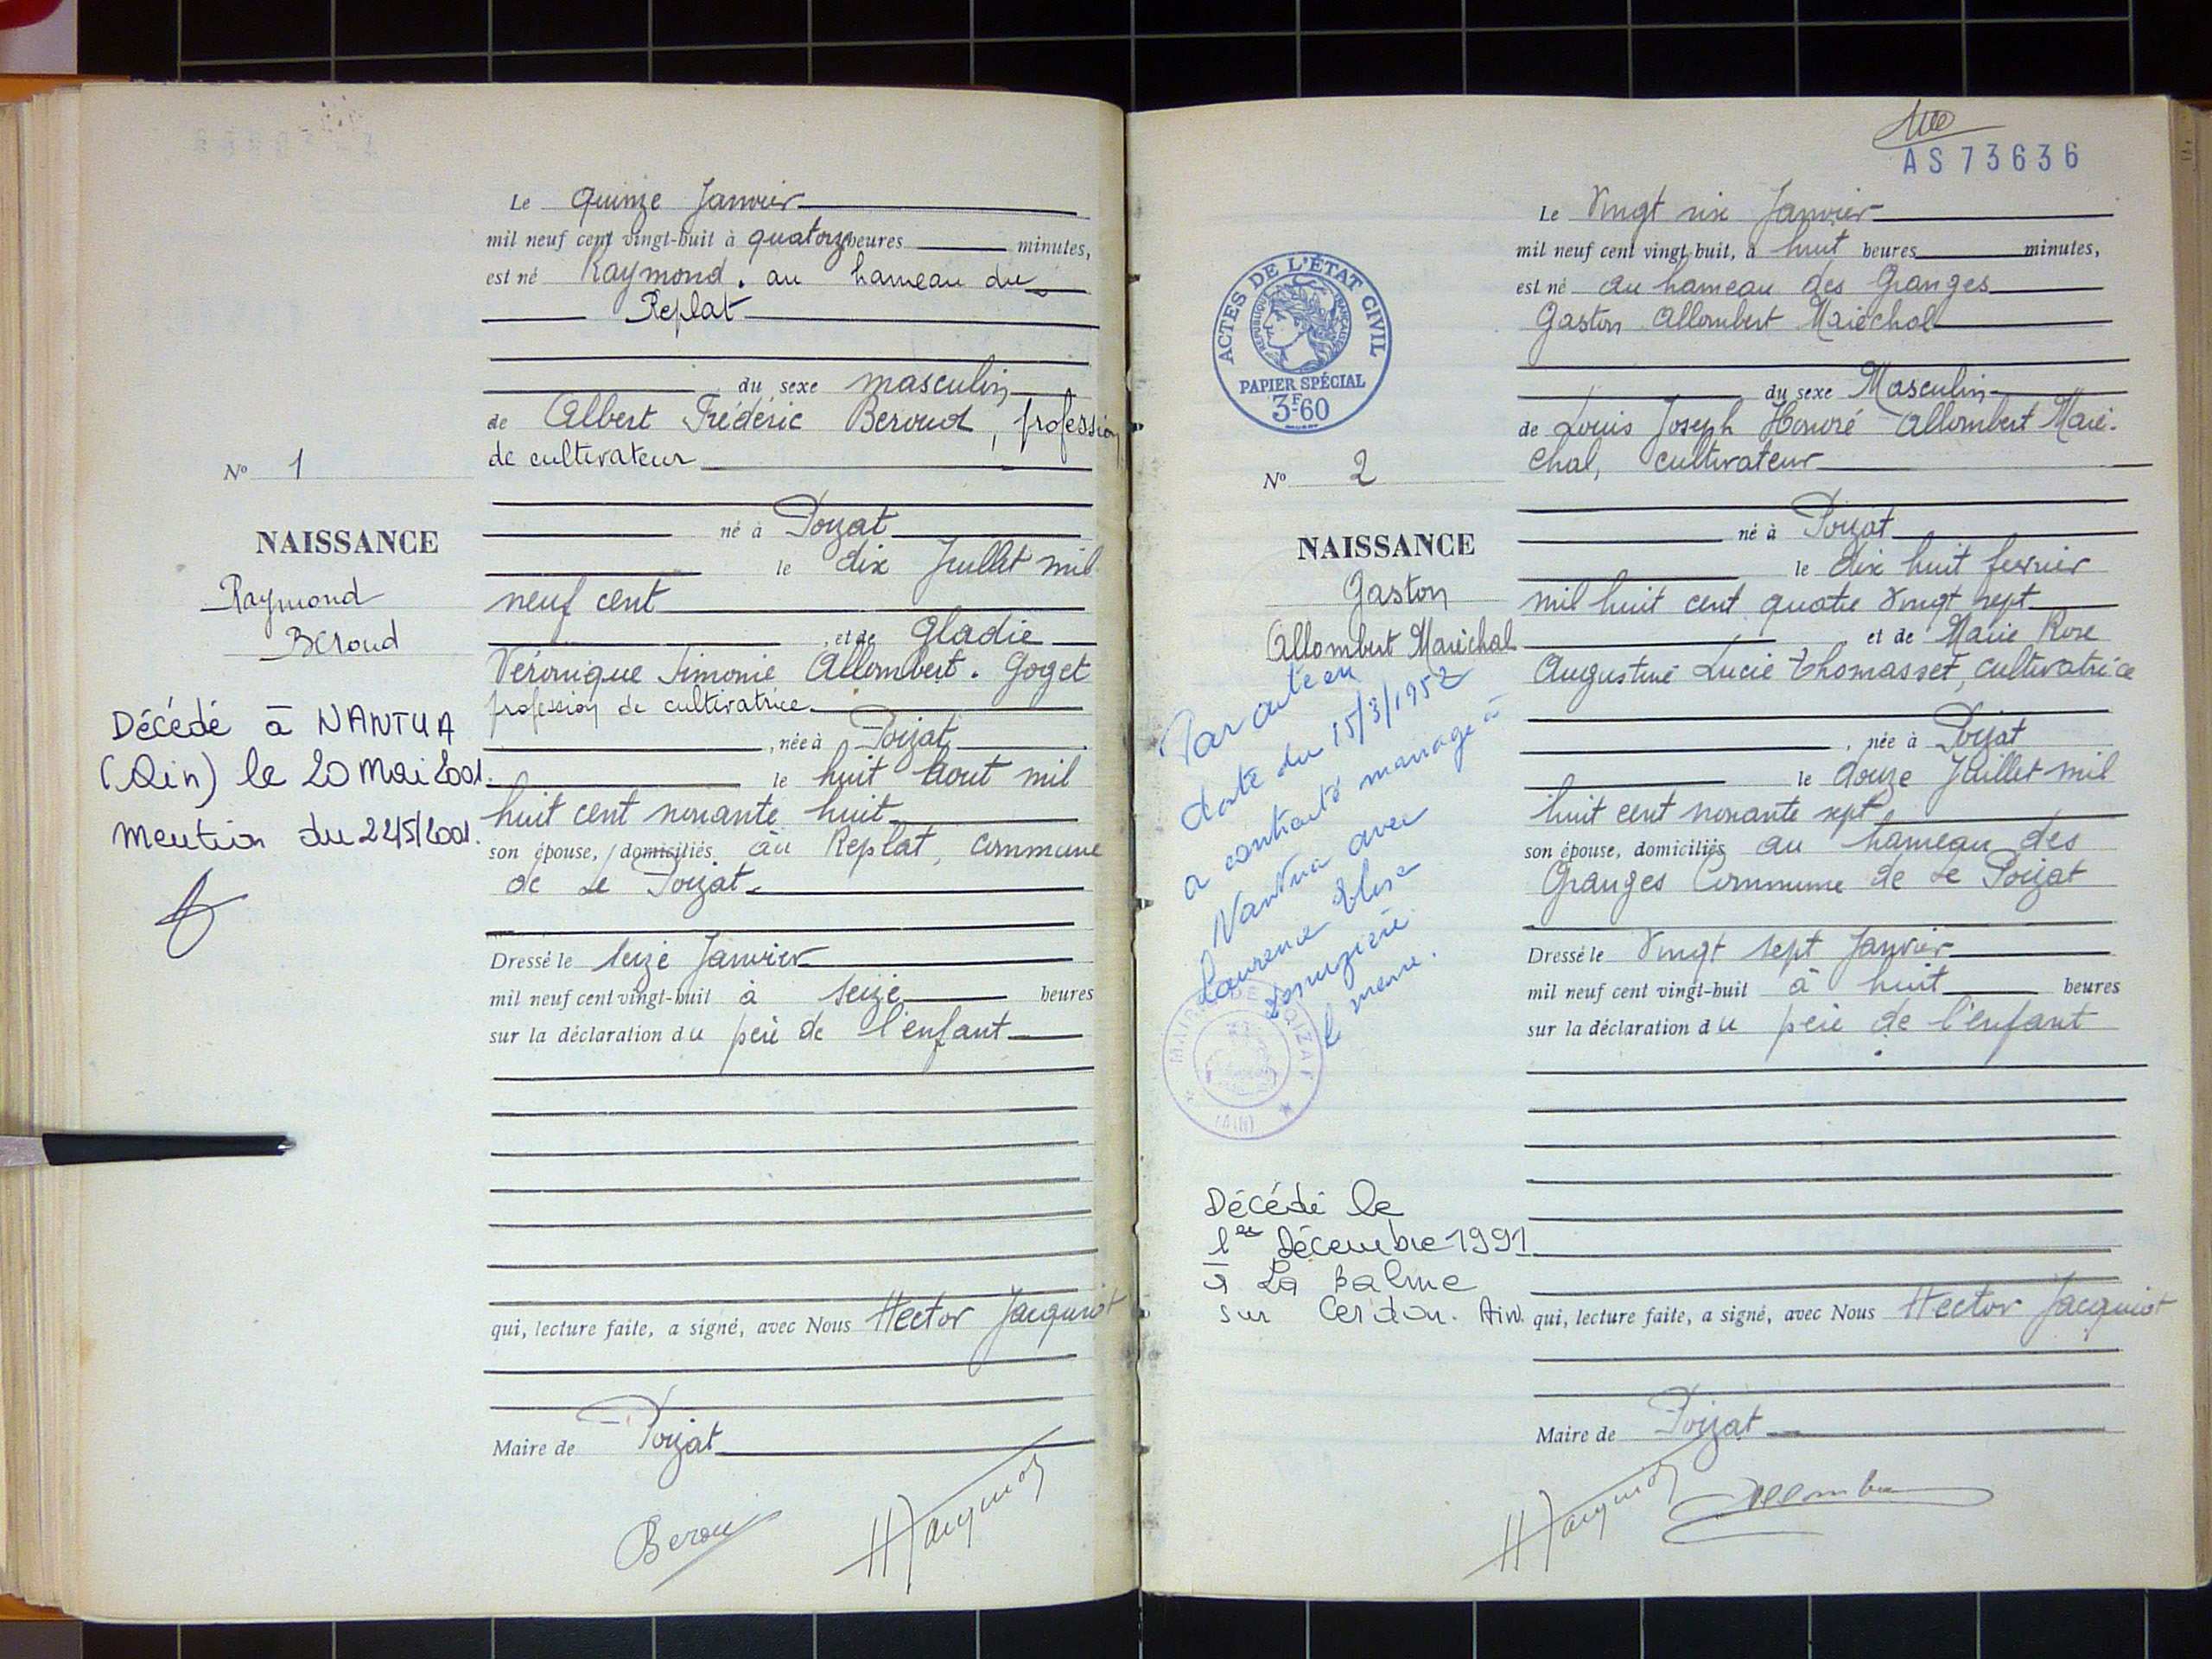 Le quinze Janvier
mil neuf cent vingt-huit à quatorze heures minutes,
est né Raymond. au hameau du
Replat
du sexe masculin
de Albert Frédéric Beroud, profession
de cultivateur
né à Poizat
le dix Juillet mil
neuf cent
, et de Gladie
Véronique Simonie Allombert. Goget
profession de cultivatrice
, née à Poizat
le huit Aout mil
huit cent nonante huit
son épouse, domiciliés au Replat, commune
de Le Poizat
Dressé le seize Janvier
mil neuf cent vingt-huit à seize heures
sur la déclaration du père de l'enfant
qui, lecture faite, a signé, avec Nous Hector Jacquiot
Maire de Poizat
Berou
HJacquiot
No 1
NAISSANCE
Raymond
Beroud
Décédé à NANTUA
(Ain) le 20 Mai 2001.
Mention du 22/5/2001.
AS73636
ACTES DE L'ÉTAT CIVIL
RÉPUBLIQUE FRANÇAISE
PAPIER SPÉCIAL
3F60
No 2
NAISSANCE
Gaston
Allombert Maréchal
Par acte en
date du 15/3/1952
a contracté mariage à
Nantua avec
Laurence Elise
le maire.
MAIRIE DE POIZAT
(AIN)
Décédé le
1er Décembre 1991
à La Balme
sur Cerdon. Ain.
Le Vingt six Janvier
mil neuf cent vingt-huit, à huit heures minutes,
est né au hameau des Granges
Gaston Allombert Maréchal
du sexe Masculin
de Louis Joseph Honoré Allombert Maré-
chal, cultivateur
né à Poizat
le dix huit fevrier
mil huit cent quatre vingt sept
et de Marie Rose
Augustine Lucie Thomasset, cultivatrice
, née à Poizat
le douze Juillet mil
huit cent nonante sept
son épouse, domiciliés au hameau des
Granges Commune de Le Poizat
Dressé le Vingt sept Janvier
mil neuf cent vingt-huit à huit heures
sur la déclaration du père de l'enfant
qui, lecture faite, a signé, avec Nous Hector Jacquiot
Maire de Poizat
HJacquiot